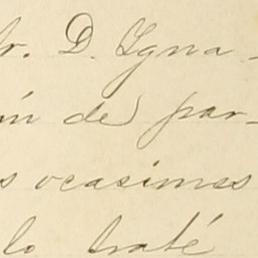 Sr. D. Igna-
ín de par-
s ocasiones
lo traté